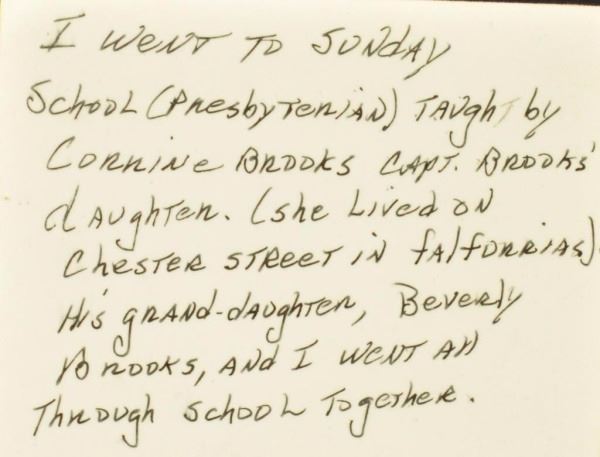 I went to Sunday
School (Presbyterian) taught by
Corrine Brooks Capt. Brooks'
daughter. (she lived on
Chester Street in Falfurrias)
His grand-daughter, Beverly
Brooks, and I went all
through school together.